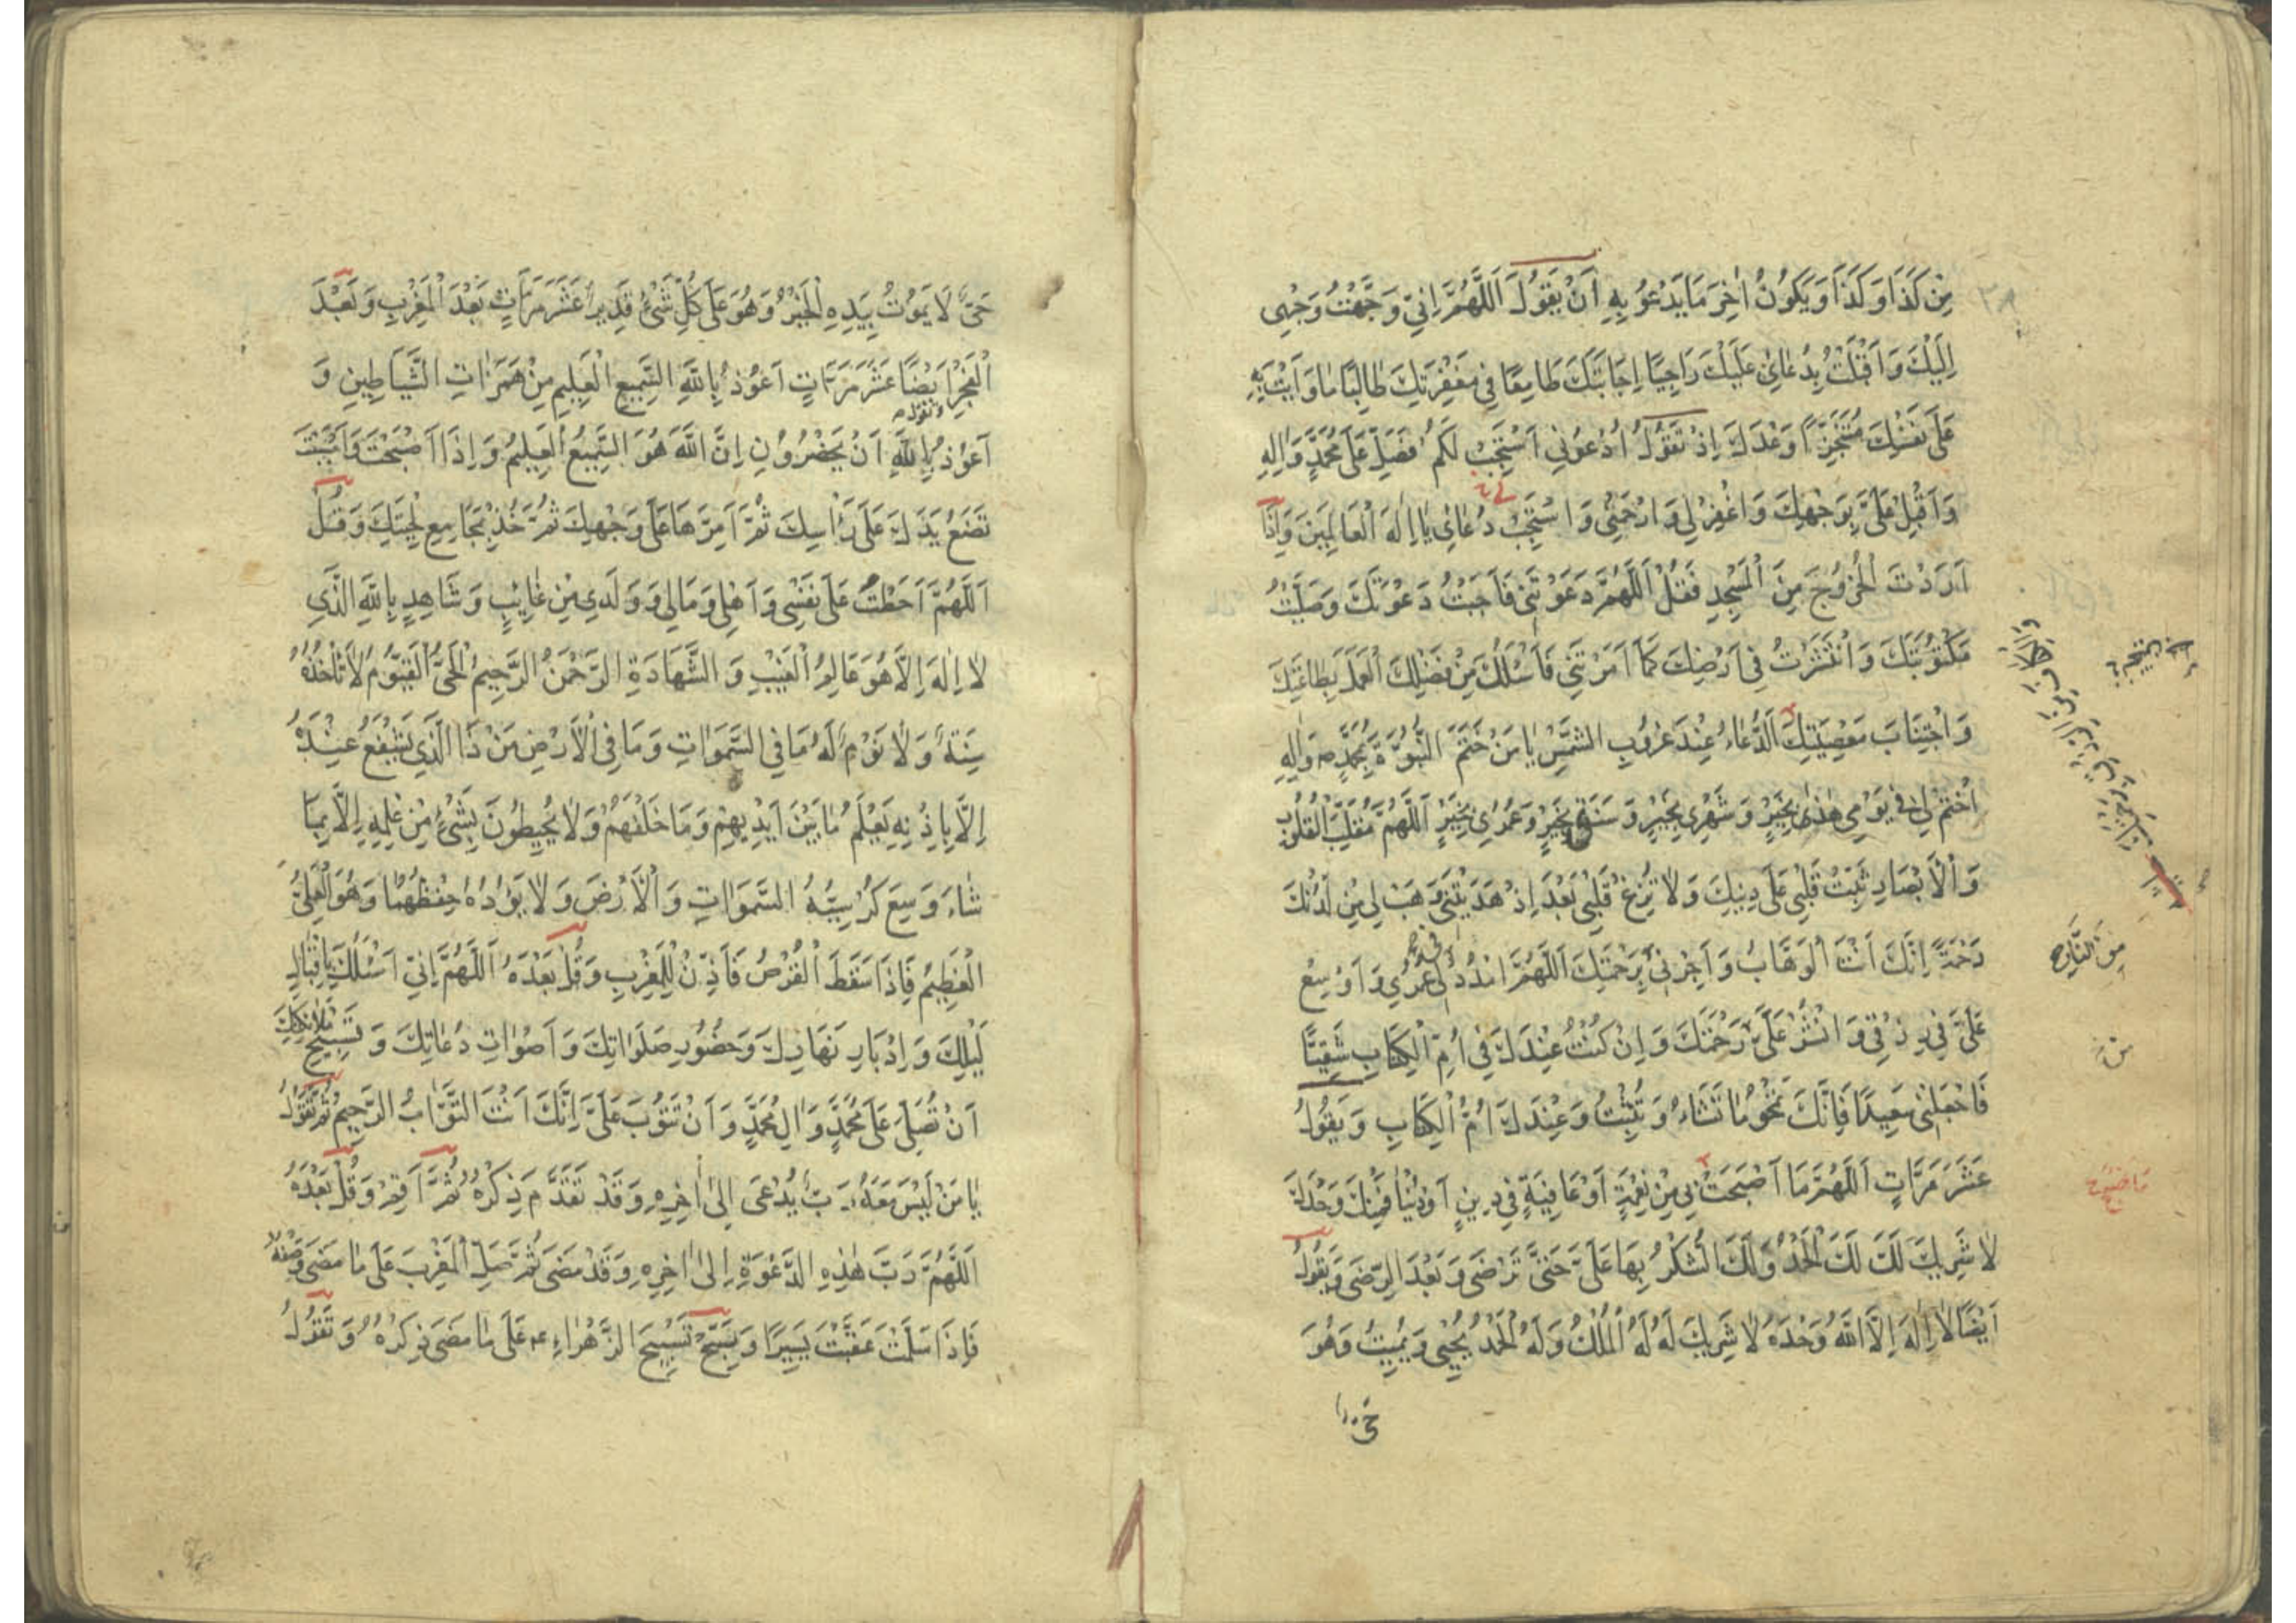 مِنْ كَذَا وَكَذَا وَيَكُونُ اٰخِرَ مَا يَدْعُو بِهِ اَنْ يَقُولَ اَللَّهُمَّ اِنِّي وَجَّهْتُ وَجْهِي
اِلَيْكَ وَاَقْبَلْتُ بِدُعَائِي عَلَيْكَ رَاجِيًا اِجَابَتَكَ طَامِعًا فِي مَغْفِرَتِكَ طَالِبًا مَا وَاَيْتَ بِهِ
عَلَى نَفْسِكَ مُتَنَجِّزًا وَعْدَكَ اِذْ تَقُولُ اُدْعُونِي اَسْتَجِبْ لَكُمْ فَصَلِّ عَلَى مُحَمَّدٍ وَاٰلِهِ
وَاَقْبِلْ عَلَيَّ بِوَجْهِكَ وَاغْفِرْ لِي وَارْحَمْنِي وَاسْتَجِبْ دُعَائِي يَا اِلٰهَ الْعَالَمِينَ وَاِذَا
اَرَدْتَ الْخُرُوجَ مِنَ الْمَسْجِدِ فَقُلْ اَللَّهُمَّ دَعَوْتَنِي فَاَجَبْتُ دَعْوَتَكَ وَصَلَّيْتُ
مَكْتُوبَتَكَ وَانْتَشَرْتُ فِي اَرْضِكَ كَمَا اَمَرْتَنِي فَاَسْئَلُكَ مِنْ فَضْلِكَ الْعَمَلَ بِطَاعَتِكَ
وَاجْتِنَابَ مَعْصِيَتِكَ اَلدُّعَاءُ عِنْدَ غُرُوبِ الشَّمْسِ يَا مَنْ خَتَمَ النُّبُوَّةَ بِمُحَمَّدٍ ص وَاٰلِهِ
اخْتِمْ لِي فِي يَوْمِي هٰذَا بِخَيْرٍ وَشَهْرِي بِخَيْرٍ وَسَنَتِي بِخَيْرٍ وَعُمْرِي بِخَيْرٍ اَللَّهُمَّ مُقَلِّبَ الْقُلُوبِ
وَالْاَبْصَارِ ثَبِّتْ قَلْبِي عَلَى دِينِكَ وَلَا تُزِغْ قَلْبِي بَعْدَ اِذْ هَدَيْتَنِي وَهَبْ لِي مِنْ لَدُنْكَ
رَحْمَةً اِنَّكَ اَنْتَ الْوَهَّابُ وَاَجِرْنِي بِرَحْمَتِكَ اَللَّهُمَّ امْدُدْ لِي فِي عُمْرِي وَاَوْسِعْ
مِنَ النَّارِ صح
عَلَيَّ فِي رِزْقِي وَانْشُرْ عَلَيَّ رَحْمَتَكَ وَاِنْ كُنْتُ عِنْدَكَ فِي اُمِّ الْكِتَابِ شَقِيًّا
فَاجْعَلْنِي سَعِيدًا فَاِنَّكَ تَمْحُو مَا تَشَاءُ وَتُثْبِتُ وَعِنْدَكَ اُمُّ الْكِتَابِ وَيَقُولُ
عَشْرَ مَرَّاتٍ اَللَّهُمَّ مَا اَصْبَحَتْ بِي مِنْ نِعْمَةٍ اَوْ عَافِيَةٍ فِي دِينٍ اَوْ دُنْيَا فَمِنْكَ وَحْدَكَ
لَا شَرِيكَ لَكَ لَكَ الْحَمْدُ وَلَكَ الشُّكْرُ بِهَا عَلَيَّ حَتَّى تَرْضَى وَبَعْدَ الرِّضَى وَيَقُولُ
اَيْضًا لَا اِلٰهَ اِلَّا اللهُ وَحْدَهُ لَا شَرِيكَ لَهُ لَهُ الْمُلْكُ وَلَهُ الْحَمْدُ يُحْيِي وَيُمِيتُ وَهُوَ
حَيٌّ لَا
حَيٌّ لَا يَمُوتُ بِيَدِهِ الْخَيْرُ وَهُوَ عَلَى كُلِّ شَيْءٍ قَدِيرٌ عَشْرَ مَرَّاتٍ بَعْدَ الْمَغْرِبِ وَبَعْدَ
الْفَجْرِ اَيْضًا عَشْرَ مَرَّاتٍ اَعُوذُ بِاللهِ السَّمِيعِ الْعَلِيمِ مِنْ هَمَزَاتِ الشَّيَاطِينِ وَ
اَعُوذُ بِاللهِ اَنْ يَحْضُرُونِ اِنَّ اللهَ هُوَ السَّمِيعُ الْعَلِيمُ وَاِذَا اَصْبَحْتَ وَاَمْسَيْتَ
تَضَعُ يَدَكَ عَلَى رَأْسِكَ ثُمَّ اَمِرَّهَا عَلَى وَجْهِكَ ثُمَّ خُذْ بِمَجَامِعِ لِحْيَتِكَ وَقُلْ
اَللَّهُمَّ اَحَطْتُ عَلَى نَفْسِي وَاَهْلِي وَمَالِي وَوَلَدِي مِنْ غَائِبٍ وَشَاهِدٍ بِاللهِ الَّذِي
لَا اِلٰهَ اِلَّا هُوَ عَالِمُ الْغَيْبِ وَالشَّهَادَةِ الرَّحْمٰنُ الرَّحِيمُ الْحَيُّ الْقَيُّومُ لَا تَأْخُذُهُ
سِنَةٌ وَلَا نَوْمٌ لَهُ مَا فِي السَّمَوَاتِ وَمَا فِي الْاَرْضِ مَنْ ذَا الَّذِي يَشْفَعُ عِنْدَهُ
اِلَّا بِاِذْنِهِ يَعْلَمُ مَا بَيْنَ اَيْدِيهِمْ وَمَا خَلْفَهُمْ وَلَا يُحِيطُونَ بِشَيْءٍ مِنْ عِلْمِهِ اِلَّا بِمَا
شَاءَ وَسِعَ كُرْسِيُّهُ السَّمَوَاتِ وَالْاَرْضَ وَلَا يَؤُدُهُ حِفْظُهُمَا وَهُوَ الْعَلِيُّ
الْعَظِيمُ فَاِذَا سَقَطَ الْقُرْصُ فَاَذِّنْ لِلْمَغْرِبِ وَقُلْ بَعْدَهُ اَللَّهُمَّ اِنِّي اَسْئَلُكَ بِاِقْبَالِ
لَيْلِكَ وَاِدْبَارِ نَهَارِكَ وَحُضُورِ صَلَوَاتِكَ وَاَصْوَاتِ دُعَاتِكَ وَتَسْبِيحِ مَلَائِكَتِكَ
اَنْ تُصَلِّيَ عَلَى مُحَمَّدٍ وَاٰلِ مُحَمَّدٍ وَاَنْ تَتُوبَ عَلَيَّ اِنَّكَ اَنْتَ التَّوَّابُ الرَّحِيمُ ثُمَّ تَقُولُ
يَا مَنْ لَيْسَ مَعَهُ رَبٌّ يُدْعَى اِلٰى اٰخِرِهِ وَقَدْ تَقَدَّمَ ذِكْرُهُ ثُمَّ اَقِمْ وَقُلْ بَعْدَهُ
اَللَّهُمَّ رَبَّ هٰذِهِ الدَّعْوَةِ اِلٰى اٰخِرِهِ وَقَدْ مَضَى ثُمَّ صَلِّ الْمَغْرِبَ عَلَى مَا مَضَى وَصْفُهُ
فَاِذَا سَلَّمْتَ عَقَّبْتَ يَسِيرًا وَتُسَبِّحُ تَسْبِيحَ الزَّهْرَاءِ ع عَلَى مَا مَضَى ذِكْرُهُ وَتَقُولُ